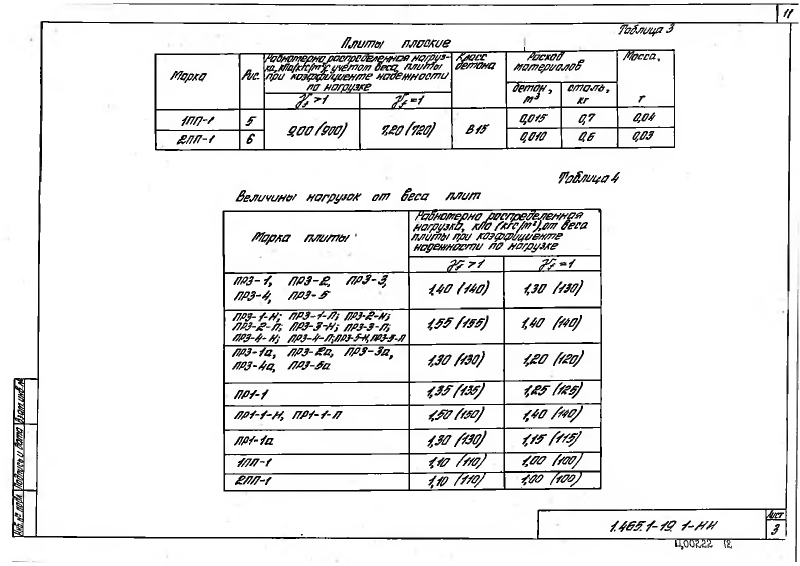 11
Таблица 3
Плиты плоские
Марка
Рис.
Равномерно распределенная нагруз-
ка, кПа(кгс/м²)с учётом веса плиты
при коэффициенте надежности
по нагрузке
γf >1
γf =1
Класс
бетона
Расход
материалов
бетон,
м³
сталь,
кг
Масса,
т
1ПП-1 5 9,00 (900) 7,20 (720) В15 0,015 0,7 0,04
2ПП-1 6 0,010 0,6 0,03
Таблица 4
Величины нагрузок от веса плит
Марка плиты
Равномерно распределенная
нагрузка, кПа (кгс/м²), от веса
плиты при коэффициенте
надежности по нагрузке
γf >1
γf =1
ПР3-1, ПР3-2, ПР3-3,
ПР3-4, ПР3-5
1,40 (140) 1,30 (130)
ПР3-1-Н; ПР3-1-П; ПР3-2-Н;
ПР3-2-П; ПР3-3-Н; ПР3-3-П;
ПР3-4-Н; ПР3-4-П; ПР3-5-Н, ПР3-5-П
1,55 (155) 1,40 (140)
ПР3-1а, ПР3-2а, ПР3-3а,
ПР3-4а, ПР3-5а
1,30 (130) 1,20 (120)
ПР1-1 1,35 (135) 1,25 (125)
ПР1-1-Н, ПР1-1-П 1,50 (150) 1,40 (140)
ПР1-1а 1,30 (130) 1,15 (115)
1ПП-1 1,10 (110) 1,00 (100)
2ПП-1 1,10 (110) 1,00 (100)
Инв. № подл. Подпись и дата Взам.инв.№
1.465.1-19. 1-НИ
Лист
3
Ц00222 12